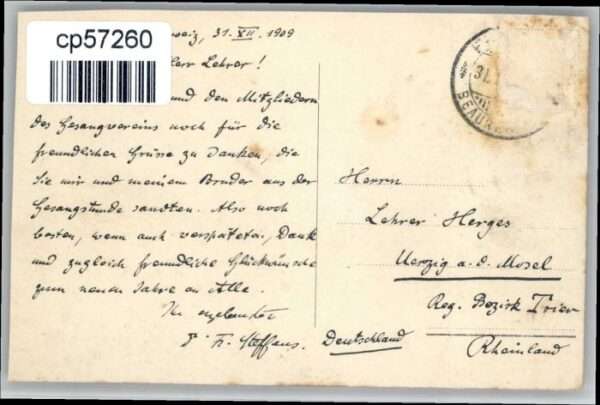 cp57260
weiz, 31. XII. 1909
err Lehrer!
und den Mitgliedern
des Gesangvereins noch für die
freundlichen Grüsse zu danken, die
Sie mir und meinem Bruder aus der
Gesangstunde sandten. Also noch
besten, wenn auch verspäteten, Dank
und zugleich freundliche Glückwünsche
zum neuen Jahre an Alle.
Ihr ergebenster
Fr. Steffens.
Herrn
Lehrer Herges
Uerzig a. d. Mosel
Reg. Bezirk Trier
Rheinland
Deutschland
31.
BEAUR